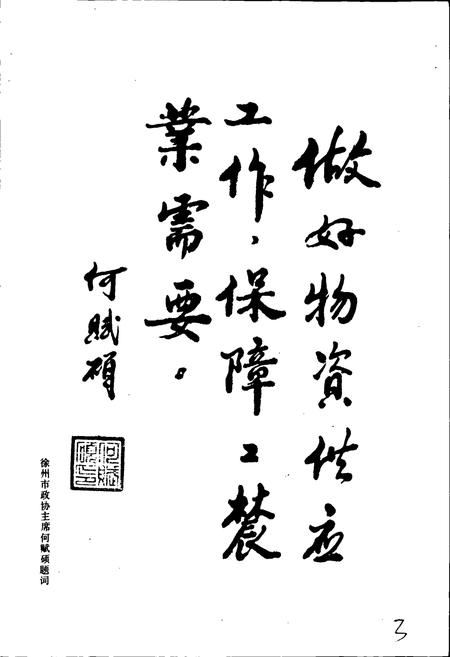 做好物資供应
工作、保障工農
業需要。
何賦碩
何赋硕印
徐州市政协主席何赋硕题词
3